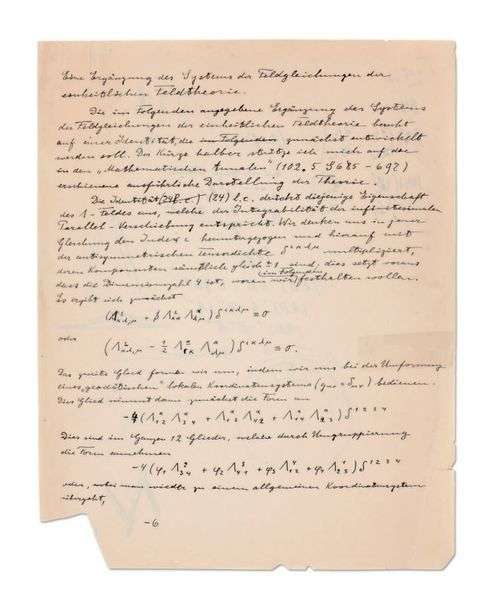 Eine Ergänzung des Systems der Feldgleichungen der
einheitlichen Feldtheorie.
Die im Folgenden angegebene Ergänzung des Systems
der Feldgleichungen der einheitlichen Feldtheorie beruht
auf einer Identität, die im Folgenden zunächst entwickelt
werden soll. Der Kürze halber stütze ich mich auf der
in den „Mathematischen Annalen" (102. S 685 - 697)
erschienene ausführliche Darstellung der Theorie.
Die Identität (24) l.c. drückt diejenige Eigenschaft
des Λ-Feldes aus, welche der Integrabilität der infinitesimalen
Parallel-Verschiebung entspricht. Wir denken uns in jener
Gleichung den Index ι heruntergezogen und hierauf mit
der antisymmetrischen Tensordichte δ^{ικλμ} multipliziert,
deren Komponenten sämtliche gleich ±1 sind, dies setzt voraus
dass die Dimensionszahl 4 ist, woran wir im Folgenden festhalten wollen.
Es ergibt sich zunächst
oder
Das zweite Glied formen wir um, indem wir uns bei der Umformung
eines „geodätischen" lokalen Koordinatensystems bedienen.
Dies Glied nimmt dann zunächst die Form an
Dies sind im Ganzen 12 Glieder, welche durch Umgruppierung
die Form annehmen
oder, wenn man wieder zu einem allgemeinen Koordinatensystem
übergeht,
-6